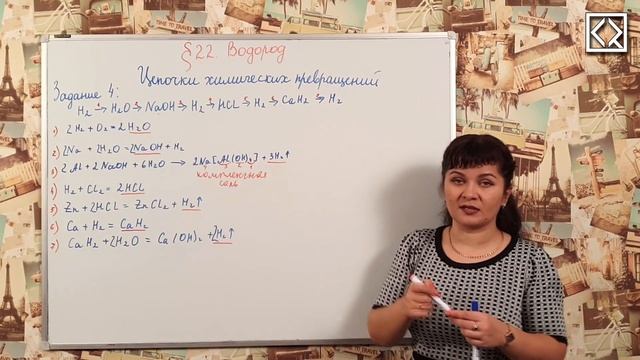 §22. Водород
Цепочки химических превращений
Задание 4:
H₂ →¹ H₂O →² NaOH →³ H₂ →⁴ HCL →⁵ H₂ →⁶ CaH₂ →⁷ H₂
1) 2H₂ + O₂ = 2H₂O
2) 2Na + 2H₂O = 2NaOH + H₂
3) 2Al + 2NaOH + 6H₂O → 2Na[Al(OH)₄] + 3H₂↑
комплексная
соль
4) H₂ + CL₂ = 2HCL
5) Zn + 2HCL = ZnCL₂ + H₂↑
6) Ca + H₂ = CaH₂
7) CaH₂ + 2H₂O = Ca(OH)₂ + 2H₂↑
TIME TO TRAVEL